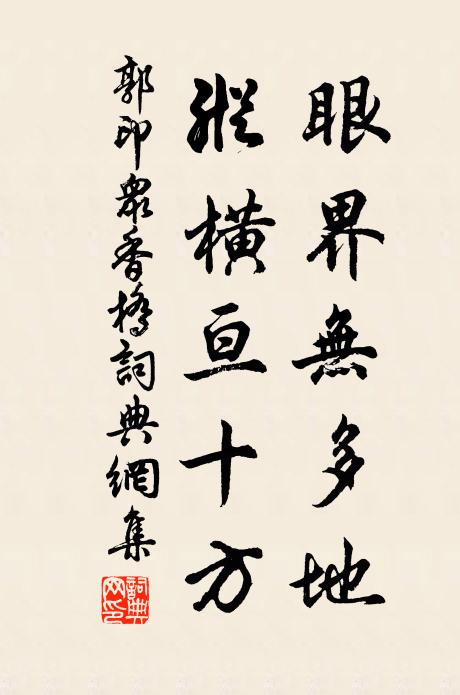 眼界無多地
縱橫亘十方
郭印眾香橋詞典網集
詞典网印